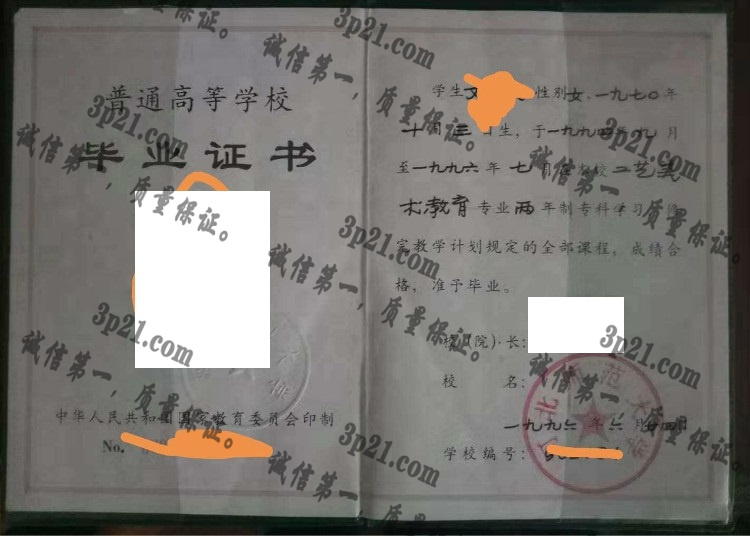 普通高等学校
毕业证书
中华人民共和国国家教育委员会印制
No.
学生 性别女，一九七〇年
十月三 生，于一九九四年九月
至一九九六年七月 校 工艺美
术教育专业两年制专科学习，修
完教学计划规定的全部课程，成绩合
格，准予毕业。
校(院)长：
校 名：
一九九六年六月廿四日
学校编号：
3p21.com
诚信第一，质量保证。
3p21.com
诚信第一，质量保证。
3p21.com
诚信第一，质量保证。
3p21.com
诚信第一，质量保证。
3p21.com
诚信第一，质量保证。
3p21.com
诚信第一，质量保证。
3p21.com
诚信第一，质量保证。
3p21.com
诚信第一，质量保证。